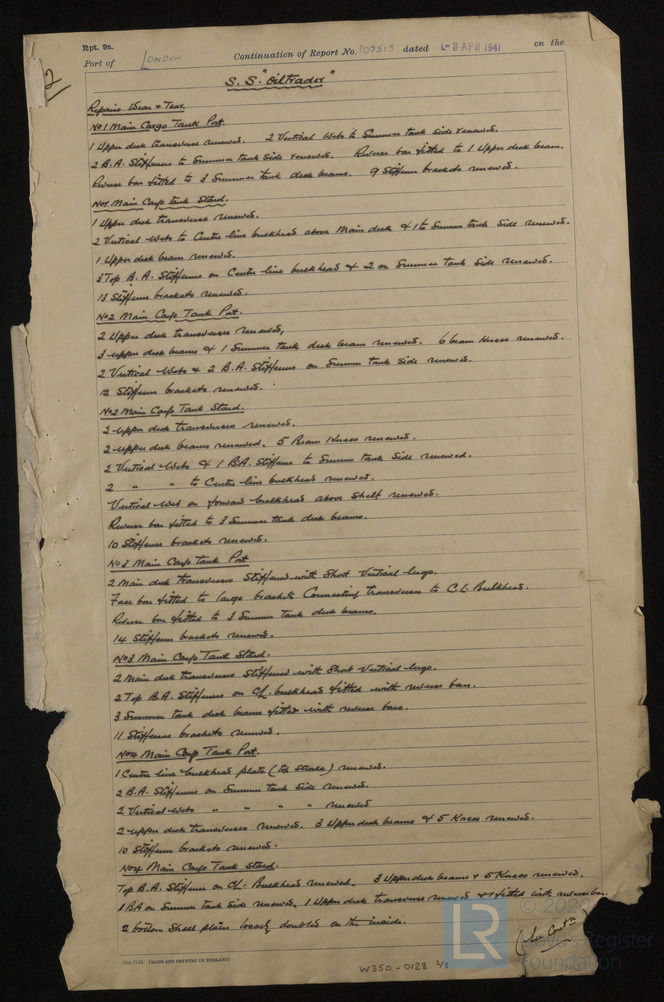 Rpt. 9a.
Port of London Continuation of Report No. 109513 dated 3 APR 1941 on the
2
S.S. "Oiltrader"
Repairs Wear & Tear.
No1 Main Cargo Tank Port.
1 Upper deck transverse renewed. 2 Vertical Webs to Summer tank side renewed.
2 B.A. Stiffeners to Summer tank side renewed. Reverse bar fitted to 1 Upper deck beam.
Reverse bar fitted to 3 Summer tank deck beams. 9 Stiffener brackets renewed.
No1 Main Cargo tank Starbd.
1 Upper deck transverse renewed.
2 Vertical Webs to Centre line bulkhead above Main deck & 1 to Summer tank side renewed.
1 Upper deck beam renewed.
3 Top B.A. Stiffeners on Centre line bulkhead & 2 on Summer Tank side renewed.
13 Stiffener brackets renewed.
No2 Main Cargo Tank Port.
2 Upper deck transverses renewed,
3 upper deck beams & 1 Summer tank deck beam renewed. 6 beam knees renewed.
2 Vertical Webs & 2 B.A. Stiffeners on Summer tank side renewed.
12 Stiffener brackets renewed.
No2 Main Cargo Tank Starbd.
2 upper deck transverses renewed.
2 upper deck beams renewed. 5 Beam Knees renewed.
2 Vertical Webs & 1 B.A. Stiffener to Summer tank side renewed.
2 " " to Centre line bulkhead renewed.
Vertical Web on forward bulkhead above shelf renewed.
Reverse bar fitted to 3 Summer tank deck beams.
10 Stiffener brackets renewed.
No3 Main Cargo Tank Port
2 Main deck transverses Stiffened with Short Vertical lugs.
Face bar fitted to large brackets Connecting transverses to C.L. Bulkhead.
Reverse bar fitted to 3 Summer tank deck beams.
14 Stiffener brackets renewed.
No3 Main Cargo Tank Starbd.
2 Main deck transverses Stiffened with Short Vertical lugs.
2 Top B.A. Stiffeners on C/L. bulkhead fitted with reverse bars.
3 Summer tank deck beams fitted with reverse bars.
11 Stiffener brackets renewed.
No4 Main Cargo Tank Port.
1 Centre line bulkhead plate (top strake) renewed.
2 B.A. Stiffeners on Summer tank side renewed.
2 Vertical Webs " " " " renewed
2 upper deck transverses renewed. 3 Upper deck beams & 5 Knees renewed.
10 Stiffener brackets renewed.
No4 Main Cargo Tank Starbd.
Top B.A. Stiffener on C/L. Bulkhead renewed. 3 Upper deck beams & 5 Knees renewed.
1 BA on Summer tank side renewed, 1 Upper deck transverse renewed & 1 fitted with reverse bar.
2 bottom Shell plates locally doubled on the inside.
(See Contn)
(MADE AND PRINTED IN ENGLAND)
W350-0128 2/5
LR © 2020
Lloyd's Register
Foundation